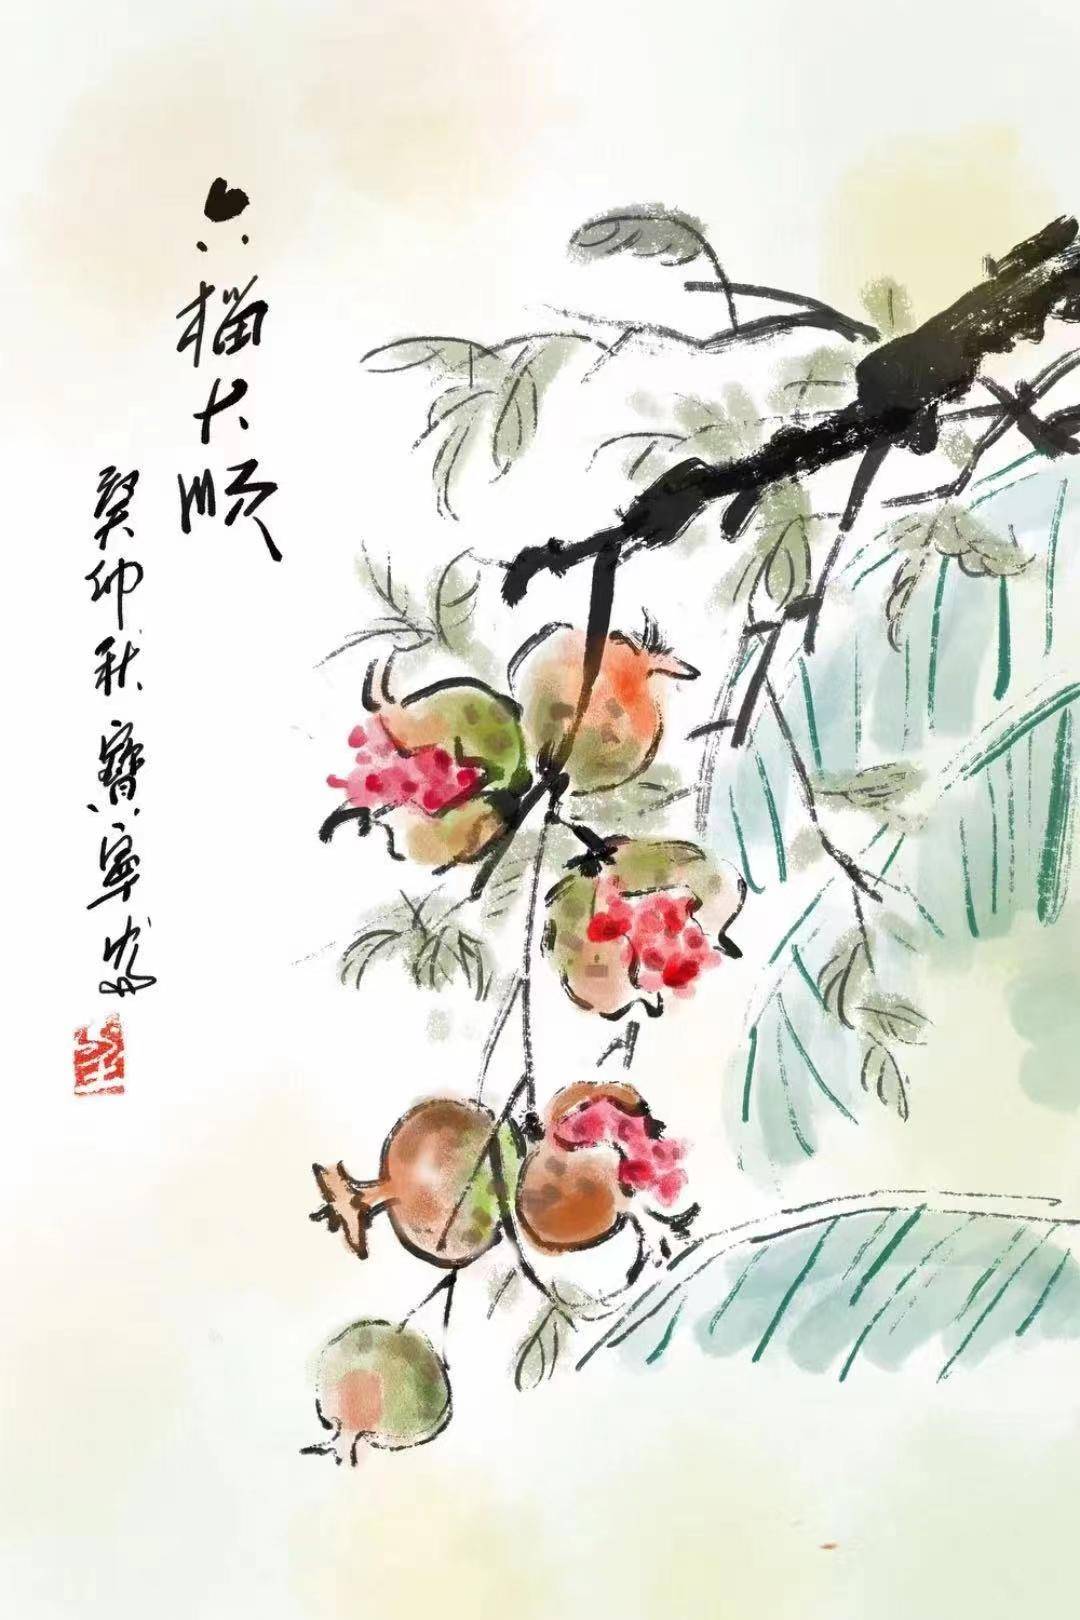 六榴大顺
癸卯秋寶寧